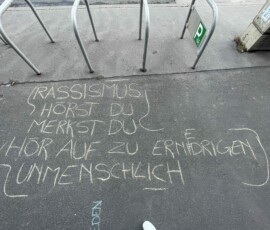 RASSISMUS
HÖRST DU
MERKST DU
HÖR AUF ZU ERNIEDRIGEN
UNMENSCHLICH
DEN